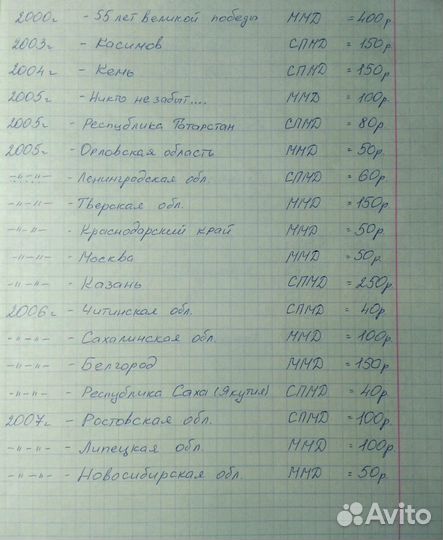 2000г. - 55 лет великой победы ММД = 400р.
2003г. - Касимов СПМД = 150р.
2004г. - Кемь СПМД = 150р.
2005г. - Никто не забыт.... ММД = 100р.
2005г. - Республика Татарстан СПМД = 80р.
2005г. - Орловская область ММД = 50р.
-"-"- - Ленинградская обл. СПМД = 60р.
-"-"- - Тверская обл. ММД = 150р.
-"-"- - Краснодарский край ММД = 50р.
-"-"- - Москва ММД = 50р.
-"-"- - Казань СПМД = 250р.
2006г. - Читинская обл. СПМД = 40р.
-"-"- - Сахалинская обл. ММД = 100р.
-"-"- - Белгород ММД = 150р.
-"-"- - Республика Саха (Якутия) СПМД = 40р.
2007г. - Ростовская обл. СПМД = 100р.
-"-"- - Липецкая обл. ММД = 100р.
-"-"- - Новосибирская обл. ММД = 50р.
Avito